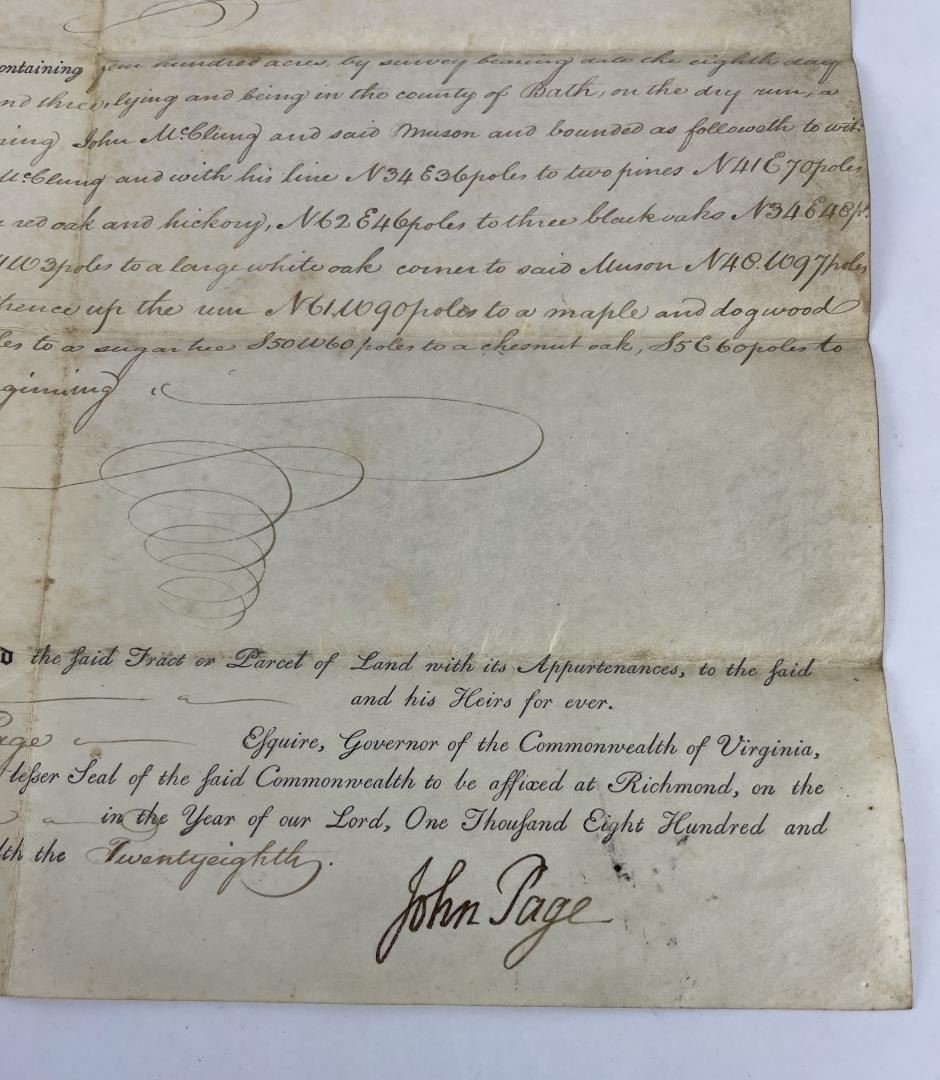 ontaining four hundred acres, by survey bearing date the eighth day
nd three, lying and being in the county of Bath, on the dry run, a
ning John McClung and said Muson and bounded as followeth to wit.
McClung and with his line N34E36poles to two pines N41E70poles
red oak and hickory, N62E46poles to three black oaks N34E48p.
W3poles to a large white oak corner to said Muson N48.W97poles
thence up the run N61.W90poles to a maple and dogwood
les to a sugar tree S50W60poles to a chesnut oak, S5E60poles to
ginning
d the ſaid Tract or Parcel of Land with its Appurtenances, to the ſaid
and his Heirs for ever.
Page Eſquire, Governor of the Commonwealth of Virginia,
leſſer Seal of the ſaid Commonwealth to be affixed at Richmond, on the
in the Year of our Lord, One Thouſand Eight Hundred and
lth the Twentyeighth.
John Page